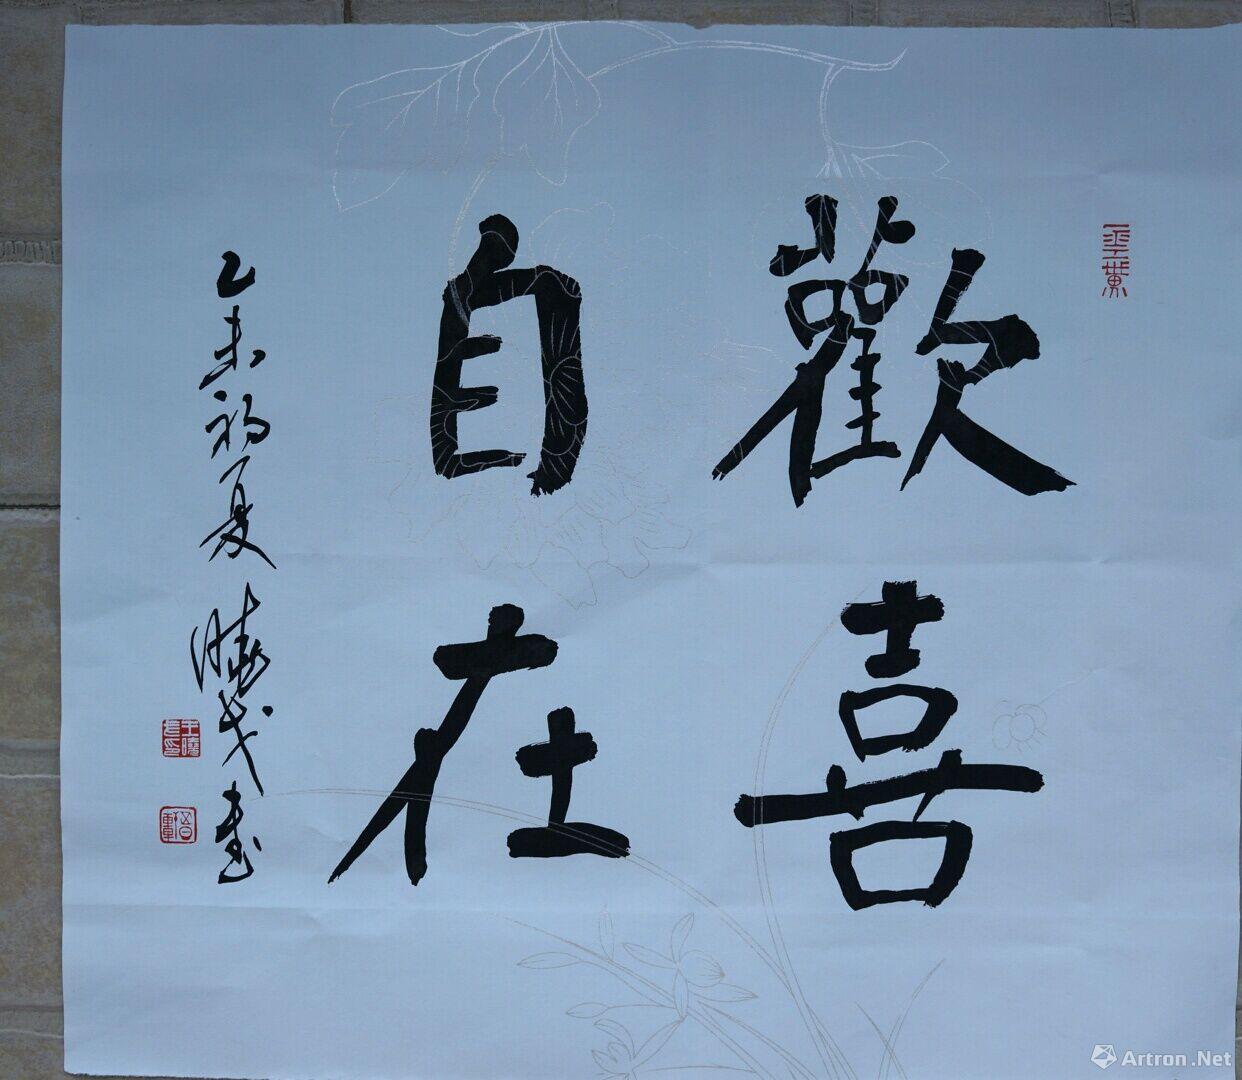 歡喜
自在
乙未初夏曉戈書
Artron.Net